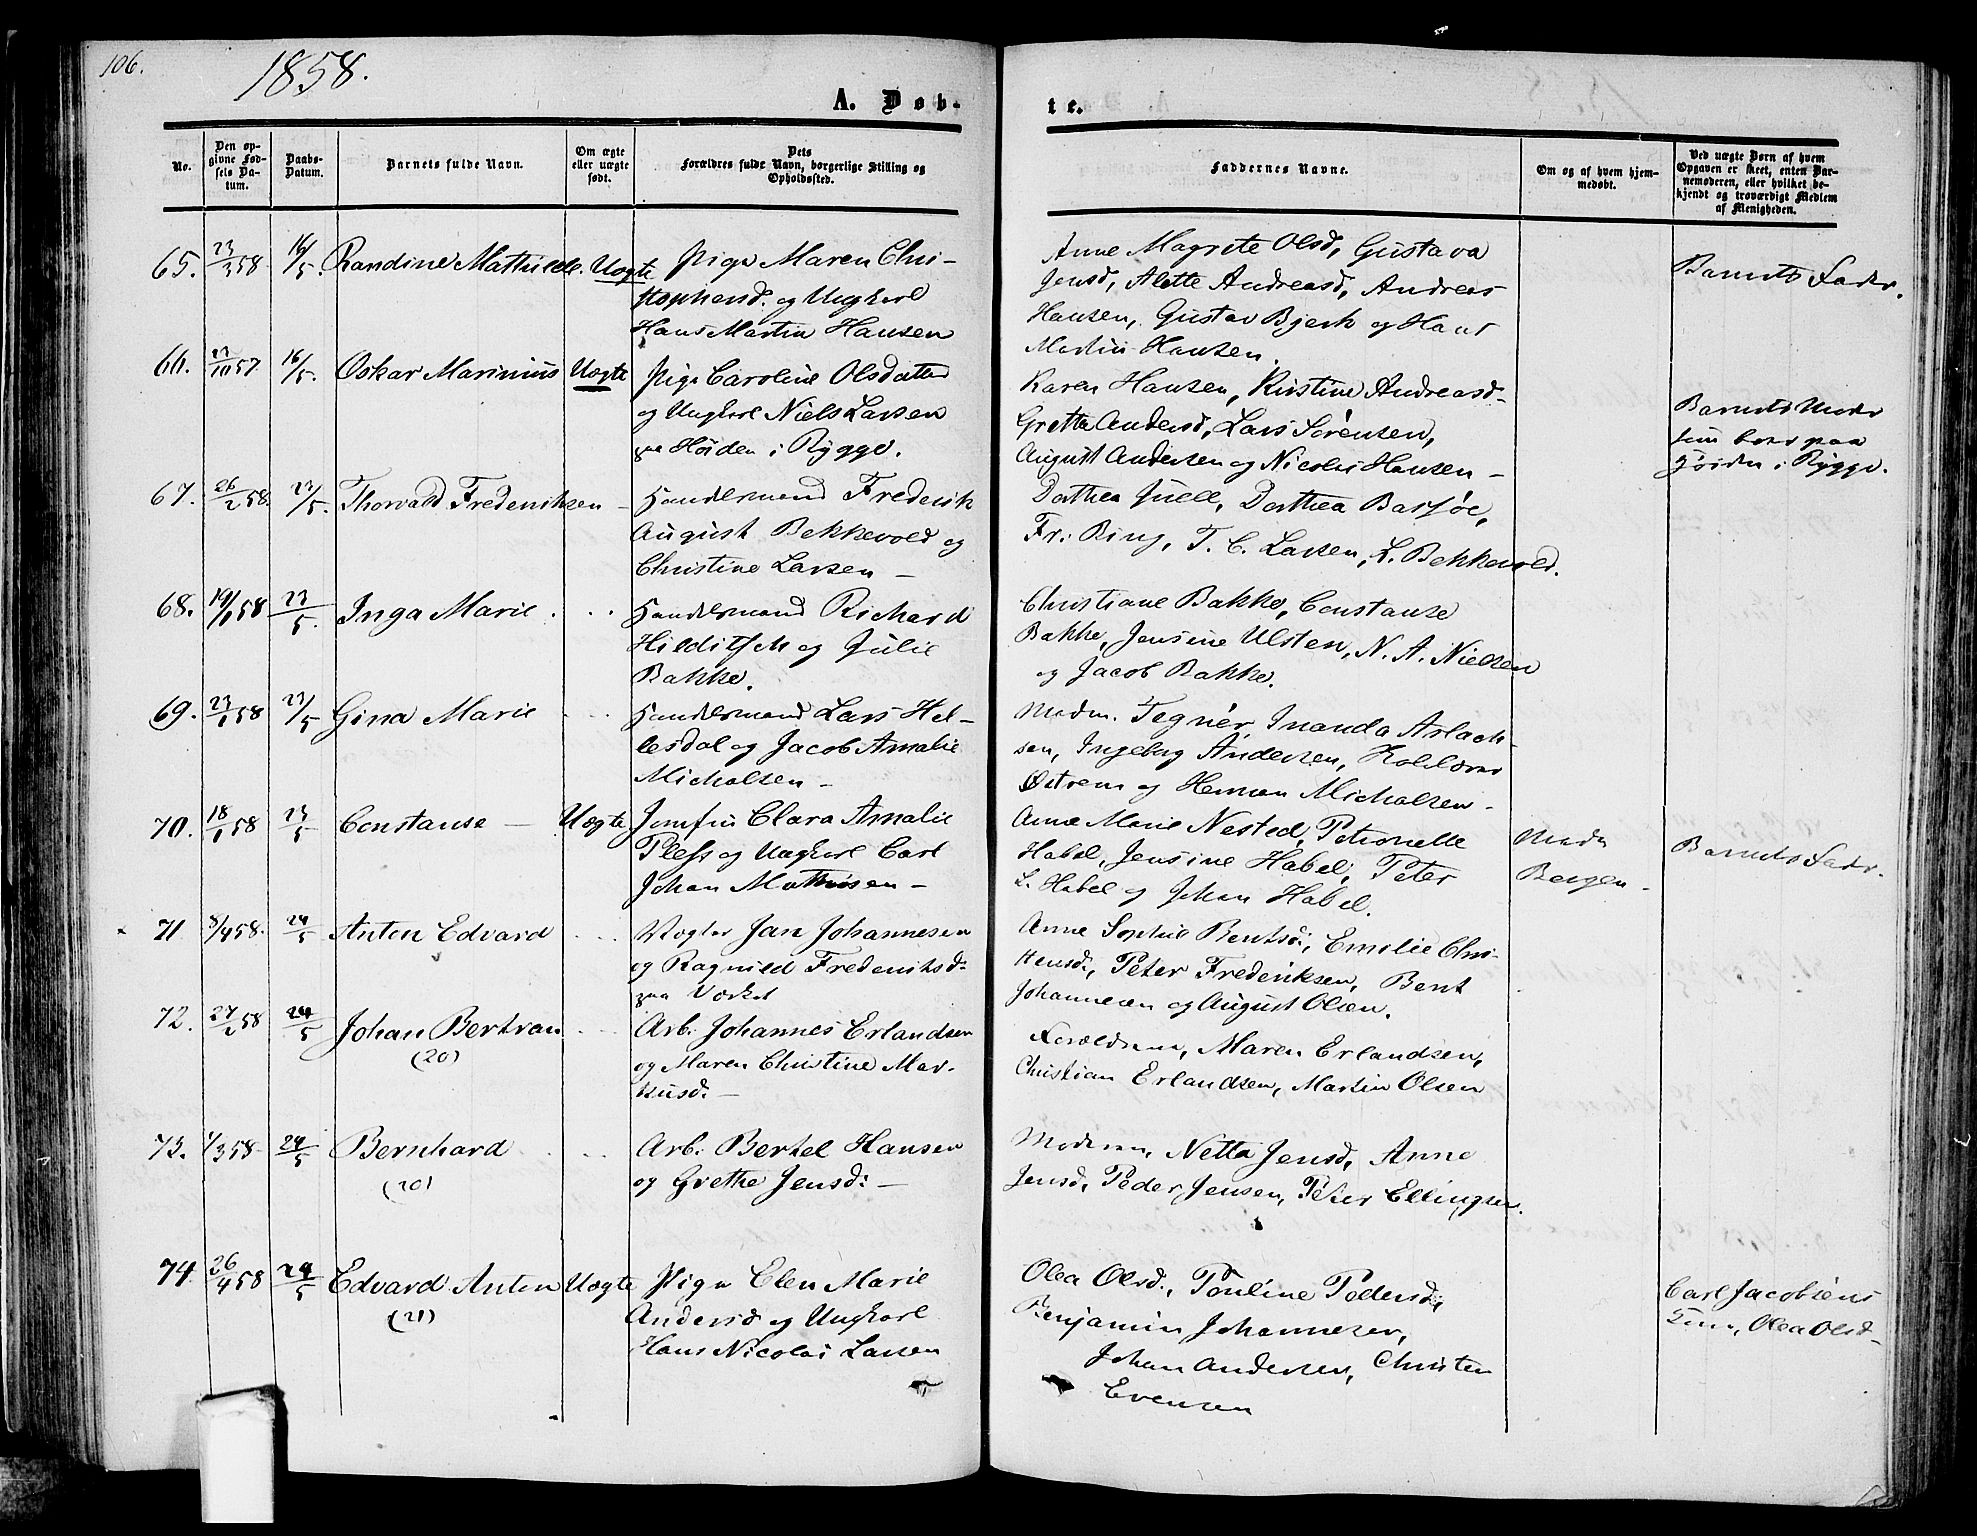 106.
1858.
A. Døb-
te.
No.
Den op-
givne Fød-
sels Da-
tum.
Daabs-
Datum.
Barnets fulde Navn.
Om ægte
eller uægte
født.
Dets
Forældres fulde Navn, borgerlige Stilling og
Opholdssted.
Faddernes Navne.
Om og af hvem hjem-
medøbt.
Ved uægte Børn af hvem
Opgaven er skeet, enten Bar-
nemoderen, eller hvilket be-
kjendt og troværdigt Medlem
af Menigheden.
65. 23/3 58 16/5. Randine Mathilde. Uægte
Pige Maren Chri-
stophersd. og Ungkarl
Hans Martin Hansen
Anne Magrete Olsd, Gustava
Jensd, Alette Andreasd, Andreas
Hansen, Gustav Bjerk og Hans
Martin Hansen.
Barnets Fader.
66. 27/10 57 16/5. Oskar Marinius Uægte
Pige Caroline Olsdatter
og Ungkarl Niels Larsen
paa Høiden i Rygge.
Karen Hansen, Kirstine Andreasd-
Gretha Andersd, Lars Sørensen,
August Andersen og Nicolai Hansen -
Barnets Moder
som boer paa
Høiden i Rygge.
67. 26/2 58. 23/5. Thorvald Frederiksen -
Handelsmand Frederik
August Bekkevold og
Christine Larsen -
Dorthea Juell, Dorthea Basføe,
Fr: Ring, T. C. Larsen, L. Bekkevold.
68. 19/1 58 23/5. Inga Marie
Handelsmand Richard
Hilditsch og Julie
Bakke.
Christiane Bakke, Constanse
Bakke, Jensine Ulsten, N. A. Nielsen
og Jacob Bakke.
69. 23/1 58 23/5 Gina Marie
Handelsmand Lars Hel-
lesdal og Jacob Amalie
Michalsen -
Madm. Tegnér, Inanda Aslach-
sen, Ingeborg Andersen,
Østrem og Herman Michalsen -
70. 18/1 58 23/5 Constanse - Uægte
Jomfru Clara Amalie
Pless og Ungkarl Carl
Johan Mathisen -
Anne Marie Nested, Petronelle
Habel, Jensine Habel, Peter
L. Habel og Johan Habel.
Madm
Bergen -
Barnets Fader.
71 8/4 58. 24/5 Anton Edvard
Vogter Jan Johannesen
og Ragnild Frederiksd:
paa Værket
Anne Sophie Bentsd:, Emilie Chri-
stensd:, Peter Frederiksen, Bent
Johannesen og August Olsen.
72. 27/2 58 24/5 Johan Bertran
(20)
Arb: Johannes Erlandsen
og Maren Christine Mar-
kusd: -
Forældrene, Maren Erlandsen,
Christian Erlandsen, Martin Olsen
73. 1/3 58 - 24/5 Bernhard
(20)
Arb: Bertel Hansen
og Grethe Jensd: -
Moderen, Netta Jensd, Anne
Jensd, Peder Jensen, Peter Ellingsen.
74. 26/4 58 24/5 Edvard Anton Uægte
(21)
Pige Elen Marie
Andersd og Ungkarl
Hans Nicolai Larsen
Olea Olsd:, Pouline Pedersd:,
Benjamin Johannesen,
Johan Andersen, Christen
Evensen
Carl Jacobsens
Kone, Olea Olsd -